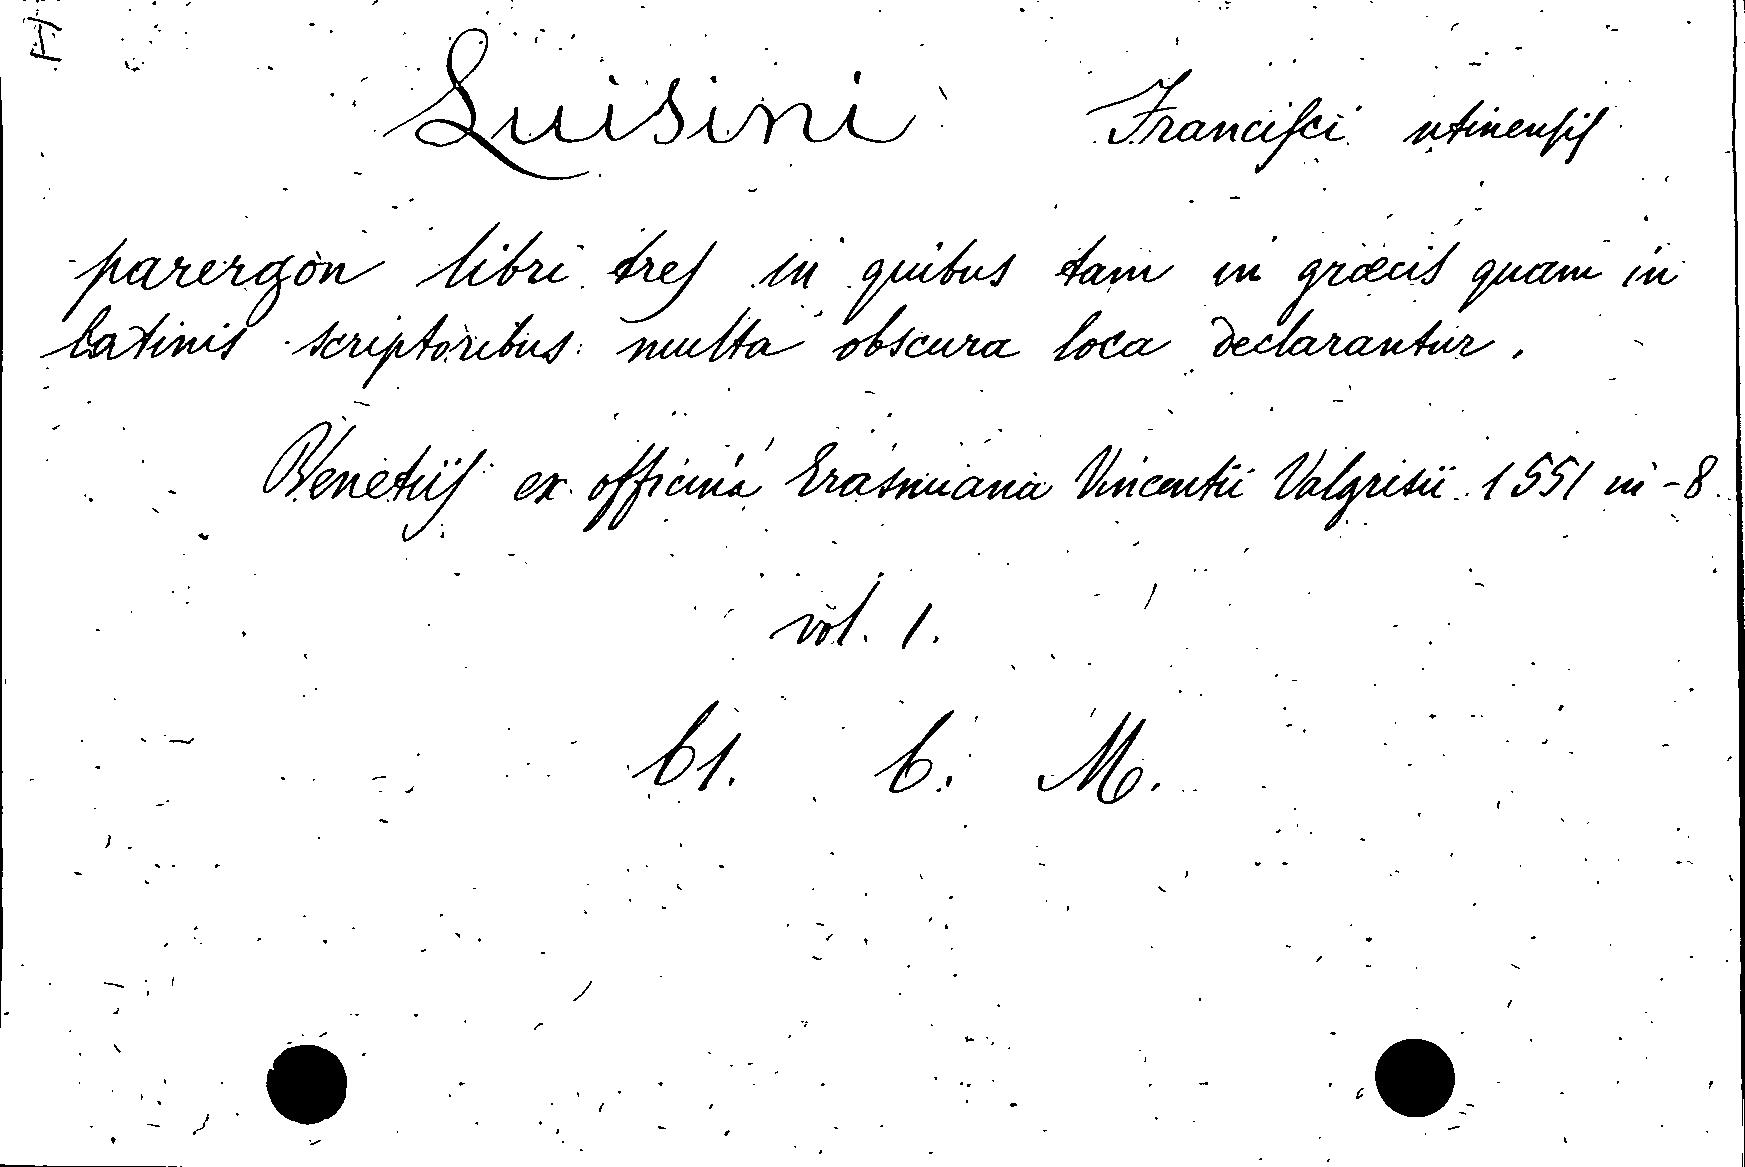 Luisini Francisci utinensis
parergòn libri tres in quibus tam in græcis quam in
latinis scriptoribus multa obscura loca declarantur.
Venetiis ex officina Erasmiana Vincentii Valgrisii 1551 in-8
vol. 1.
61. 6. M.